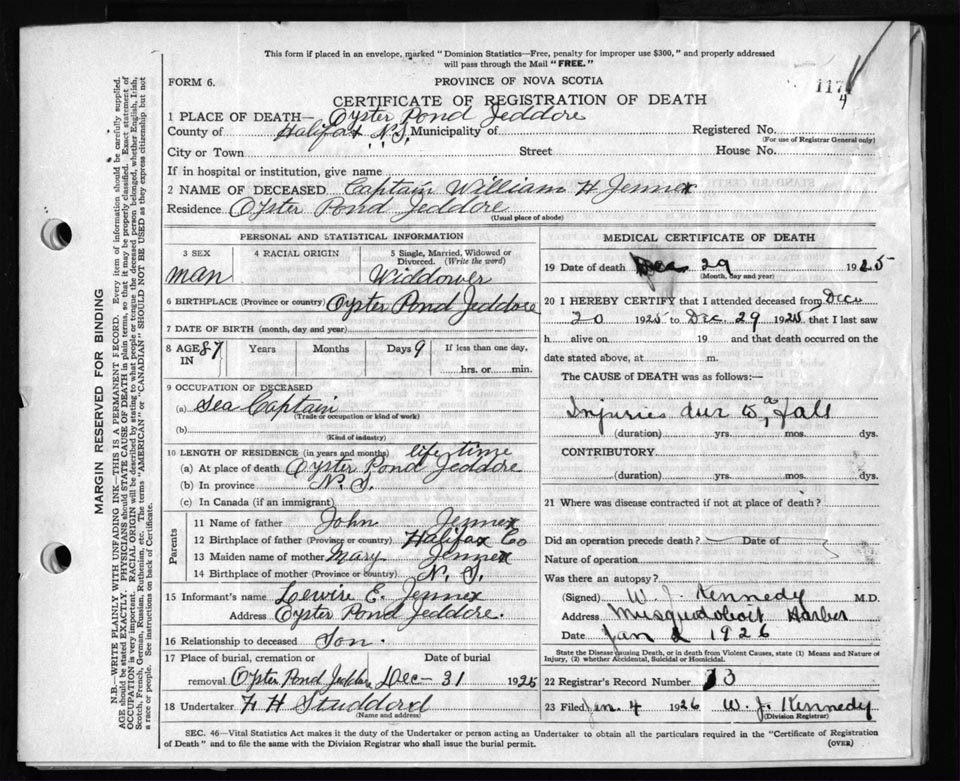 This form if placed in an envelope, marked "Dominion Statistics—Free, penalty for improper use $300," and properly addressed
will pass through the Mail "FREE."
FORM 6.
PROVINCE OF NOVA SCOTIA
117
4
CERTIFICATE OF REGISTRATION OF DEATH
1 PLACE OF DEATH— Oyster Pond Jeddore
County of Halifax N.S. Municipality of Registered No.
(For use of Registrar General only)
City or Town Street House No.
If in hospital or institution, give name
2 NAME OF DECEASED Captain William H Jennex
Residence Oyster Pond Jeddore
(Usual place of abode)
PERSONAL AND STATISTICAL INFORMATION
3 SEX man
4 RACIAL ORIGIN
5 Single, Married, Widowed or Divorced. (Write the word)
Widdower
6 BIRTHPLACE (Province or country) Oyster Pond Jeddore
7 DATE OF BIRTH (month, day and year)
8 AGE IN 87 Years Months Days 9 If less than one day, hrs. or min.
9 OCCUPATION OF DECEASED
(a) Sea Captain
(Trade or occupation or kind of work)
(b)
(Kind of industry)
10 LENGTH OF RESIDENCE (in years and months) life time
(a) At place of death Oyster Pond Jeddore
(b) In province N.S.
(c) In Canada (if an immigrant)
Parents
11 Name of father John Jennex
12 Birthplace of father (Province or country) Halifax Co
13 Maiden name of mother Mary Jennex
14 Birthplace of mother (Province or country) N.S.
15 Informant's name E. Jennex
Address Oyster Pond Jeddore.
16 Relationship to deceased Son.
17 Place of burial, cremation or removal Oyster Pond Jeddore
Date of burial Dec-31 1925
18 Undertaker F H Studdard
(Name and address)
MEDICAL CERTIFICATE OF DEATH
19 Date of death Dec 29 1925
(Month, day and year)
20 I HEREBY CERTIFY that I attended deceased from Dec
20 1925 to Dec. 29 1925 that I last saw
h alive on 19 and that death occurred on the
date stated above, at m.
The CAUSE OF DEATH was as follows:—
Injuries dur to a fall
(duration) yrs. mos. dys.
CONTRIBUTORY
(duration) yrs. mos. dys.
21 Where was disease contracted if not at place of death?
Did an operation precede death? Date of
Nature of operation
Was there an autopsy?
(Signed) W. J. Kennedy M.D.
Address Musquodoboit Harbor
Date Jan 2 1926
State the Disease causing Death, or in death from Violent Causes, state (1) Means and Nature of
Injury, (2) whether Accidental, Suicidal or Homicidal.
22 Registrar's Record Number 13
23 Filed Jan. 4 1926 W. J. Kennedy
(Division Registrar)
SEC. 46—Vital Statistics Act makes it the duty of the Undertaker or person acting as Undertaker to obtain all the particulars required in the "Certificate of Registration
of Death" and to file the same with the Division Registrar who shall issue the burial permit.
(OVER)
MARGIN RESERVED FOR BINDING
N.B.—WRITE PLAINLY WITH UNFADING INK—THIS IS A PERMANENT RECORD. Every item of information should be carefully supplied.
AGE should be stated EXACTLY. PHYSICIANS should STATE CAUSE OF DEATH in plain terms, so that it may be properly classified. Exact statement of
OCCUPATION is very important. RACIAL ORIGIN will be described by stating to what people or tongue the deceased person belonged, whether English, Irish,
Scotch, French, German, Russian, Ruthenian, etc. The terms "AMERICAN" or "CANADIAN" SHOULD NOT BE USED as they express citizenship but not
a race or people. See instructions on back of Certificate.